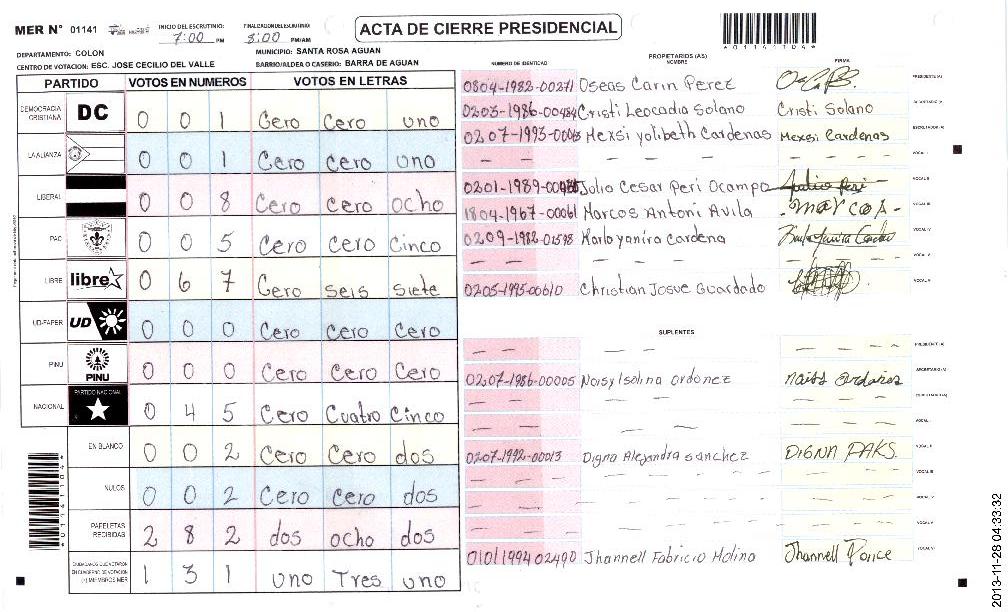 MER N° 01141
INICIO DEL ESCRUTINIO:
7:00 PM
FINALIZACION DEL ESCRUTINIO:
8:00 PM/AM
ACTA DE CIERRE PRESIDENCIAL
DEPARTAMENTO: COLON
MUNICIPIO: SANTA ROSA AGUAN
CENTRO DE VOTACION: ESC. JOSE CECILIO DEL VALLE
BARRIO/ALDEA O CASERIO: BARRA DE AGUAN
PARTIDO VOTOS EN NUMEROS VOTOS EN LETRAS
DEMOCRACIA CRISTIANA DC 0 0 1 Cero Cero uno
LA ALIANZA 0 0 1 Cero Cero uno
LIBERAL 0 0 8 Cero Cero ocho
PAC 0 0 5 Cero Cero Cinco
LIBRE libre 0 6 7 Cero seis siete
UD-FAPER UD 0 0 0 Cero Cero Cero
PINU PINU 0 0 0 Cero Cero Cero
NACIONAL PARTIDO NACIONAL 0 4 5 Cero Cuatro Cinco
EN BLANCO 0 0 2 Cero Cero dos
NULOS 0 0 2 Cero cero dos
PAPELETAS RECIBIDAS 2 8 2 dos ocho dos
CIUDADANOS QUE VOTARON EN CUADERNO DE VOTACION (+) MIEMBROS MER 1 3 1 uno Tres uno
NUMERO DE IDENTIDAD PROPIETARIOS (AS) NOMBRE FIRMA
0804-1982-00271 Oseas Carin Perez PRESIDENTE (A)
0203-1986-00484 Cristi Leocadia Solano Cristi Solano SECRETARIO (A)
Mexsi yolibeth Cardenas Mexsi Cardenas ESCRUTADOR (A)
— — — — — — — VOCAL I
Julio Cesar Peri Ocampo Julio Peri VOCAL II
1804-1967-00061 Marcos Antoni Avila -marcos- VOCAL III
0209-1982-01598 Karla yanira Cardena VOCAL IV
— — — — — — — VOCAL V
0205-1995-00610 Christian Josue Guardado
SUPLENTES
— — — — — — — PRESIDENTE (A)
0207-1986-00005 Noisy Isolina ordonez SECRETARIO (A)
— — — — — — — ESCRUTADOR (A)
— — — — — — — VOCAL I
0207-1992-00013 Digna Alejandra sanchez DIGNA PAKS. VOCAL II
— — — — — — — VOCAL III
— — — — — — — VOCAL IV
— — — — — — — VOCAL V
0101199402490 Jhannell Fabricio Molina Jhannell Ponce
*01141104*
2013-11-28 04:33:32